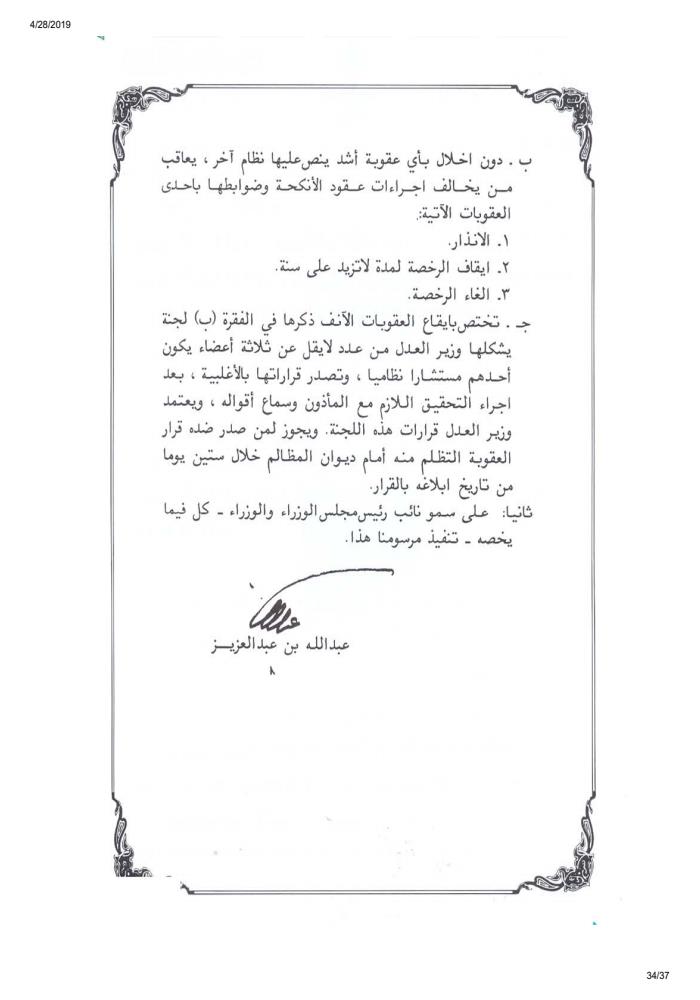 4/28/2019
ب . دون اخلال بأي عقوبة أشد ينص عليها نظام آخر ، يعاقب
من يخالف اجراءات عقود الأنكحة وضوابطها باحدى
العقوبات الآتية:
١. الانذار.
٢. ايقاف الرخصة لمدة لاتزيد على سنة.
٣. الغاء الرخصة.
جـ . تختص بايقاع العقوبات الآنف ذكرها في الفقرة (ب) لجنة
يشكلها وزير العدل من عدد لايقل عن ثلاثة أعضاء يكون
أحدهم مستشارا نظاميا ، وتصدر قراراتها بالأغلبية ، بعد
اجراء التحقيق اللازم مع المأذون وسماع أقواله ، ويعتمد
وزير العدل قرارات هذه اللجنة. ويجوز لمن صدر ضده قرار
العقوبة التظلم منه أمام ديوان المظالم خلال ستين يوما
من تاريخ ابلاغه بالقرار.
ثانيا: على سمو نائب رئيس مجلس الوزراء والوزراء ـ كل فيما
يخصه ـ تنفيذ مرسومنا هذا.
عبدالله بن عبدالعزيز
34/37